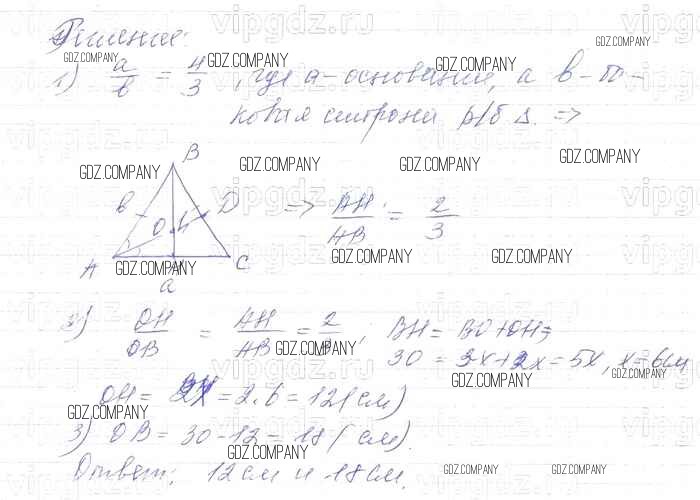 Решение:
1) a/b = 4/3, где a - основание, а b - бо-
ковая сторона р/б Δ. =>
B
b O D => AH/AB = 2/3
A H C
a
2) OH/OB = AH/AB = 2/3; BH = BO + OH =>
30 = 3x + 2x = 5x, x = 6 см
OH = 2x = 2·6 = 12 (см)
3) OB = 30 - 12 = 18 (см).
Ответ: 12 см и 18 см.
GDZ.COMPANY
vipgdz.ru